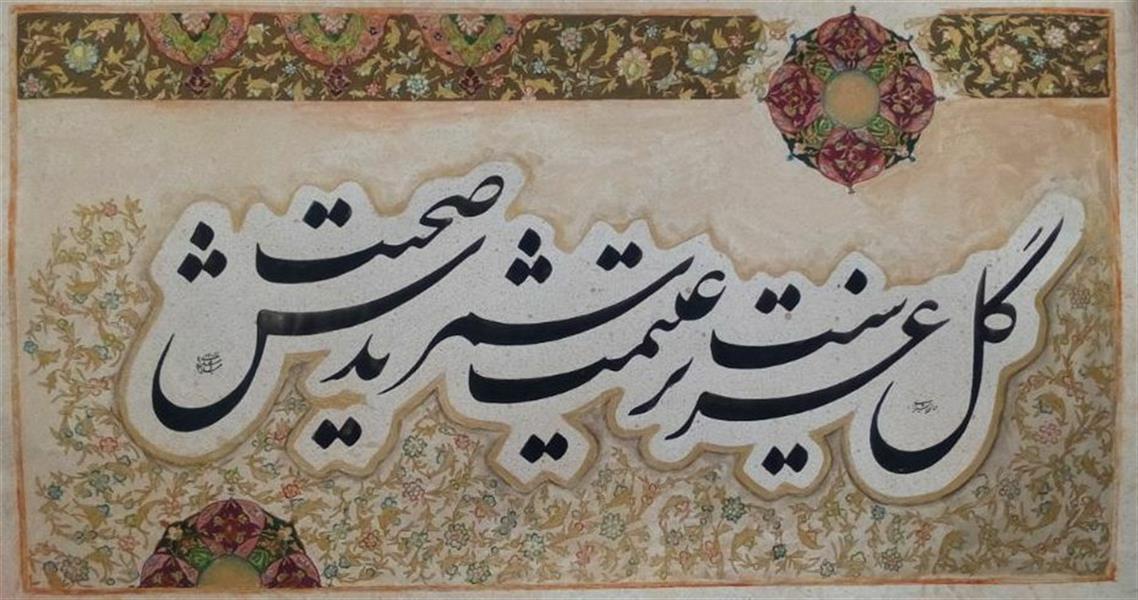 گل عزیزست غنیمت شمریدش صحبت